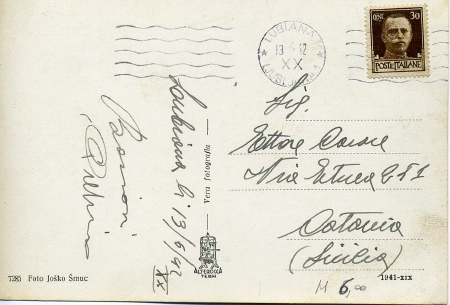 LUBIANA
13 6 42
XX
LJUBLJANA 1
CENT. 30
POSTE ITALIANE
Lubiana li 13/6/42
XX
Vera fotografia
ALTEROCCA
TERNI
Sig.
Ettore
Via Etnea
Catania
(Sicilia)
7285 Foto Joško Šmuc
1941-XIX
6,00